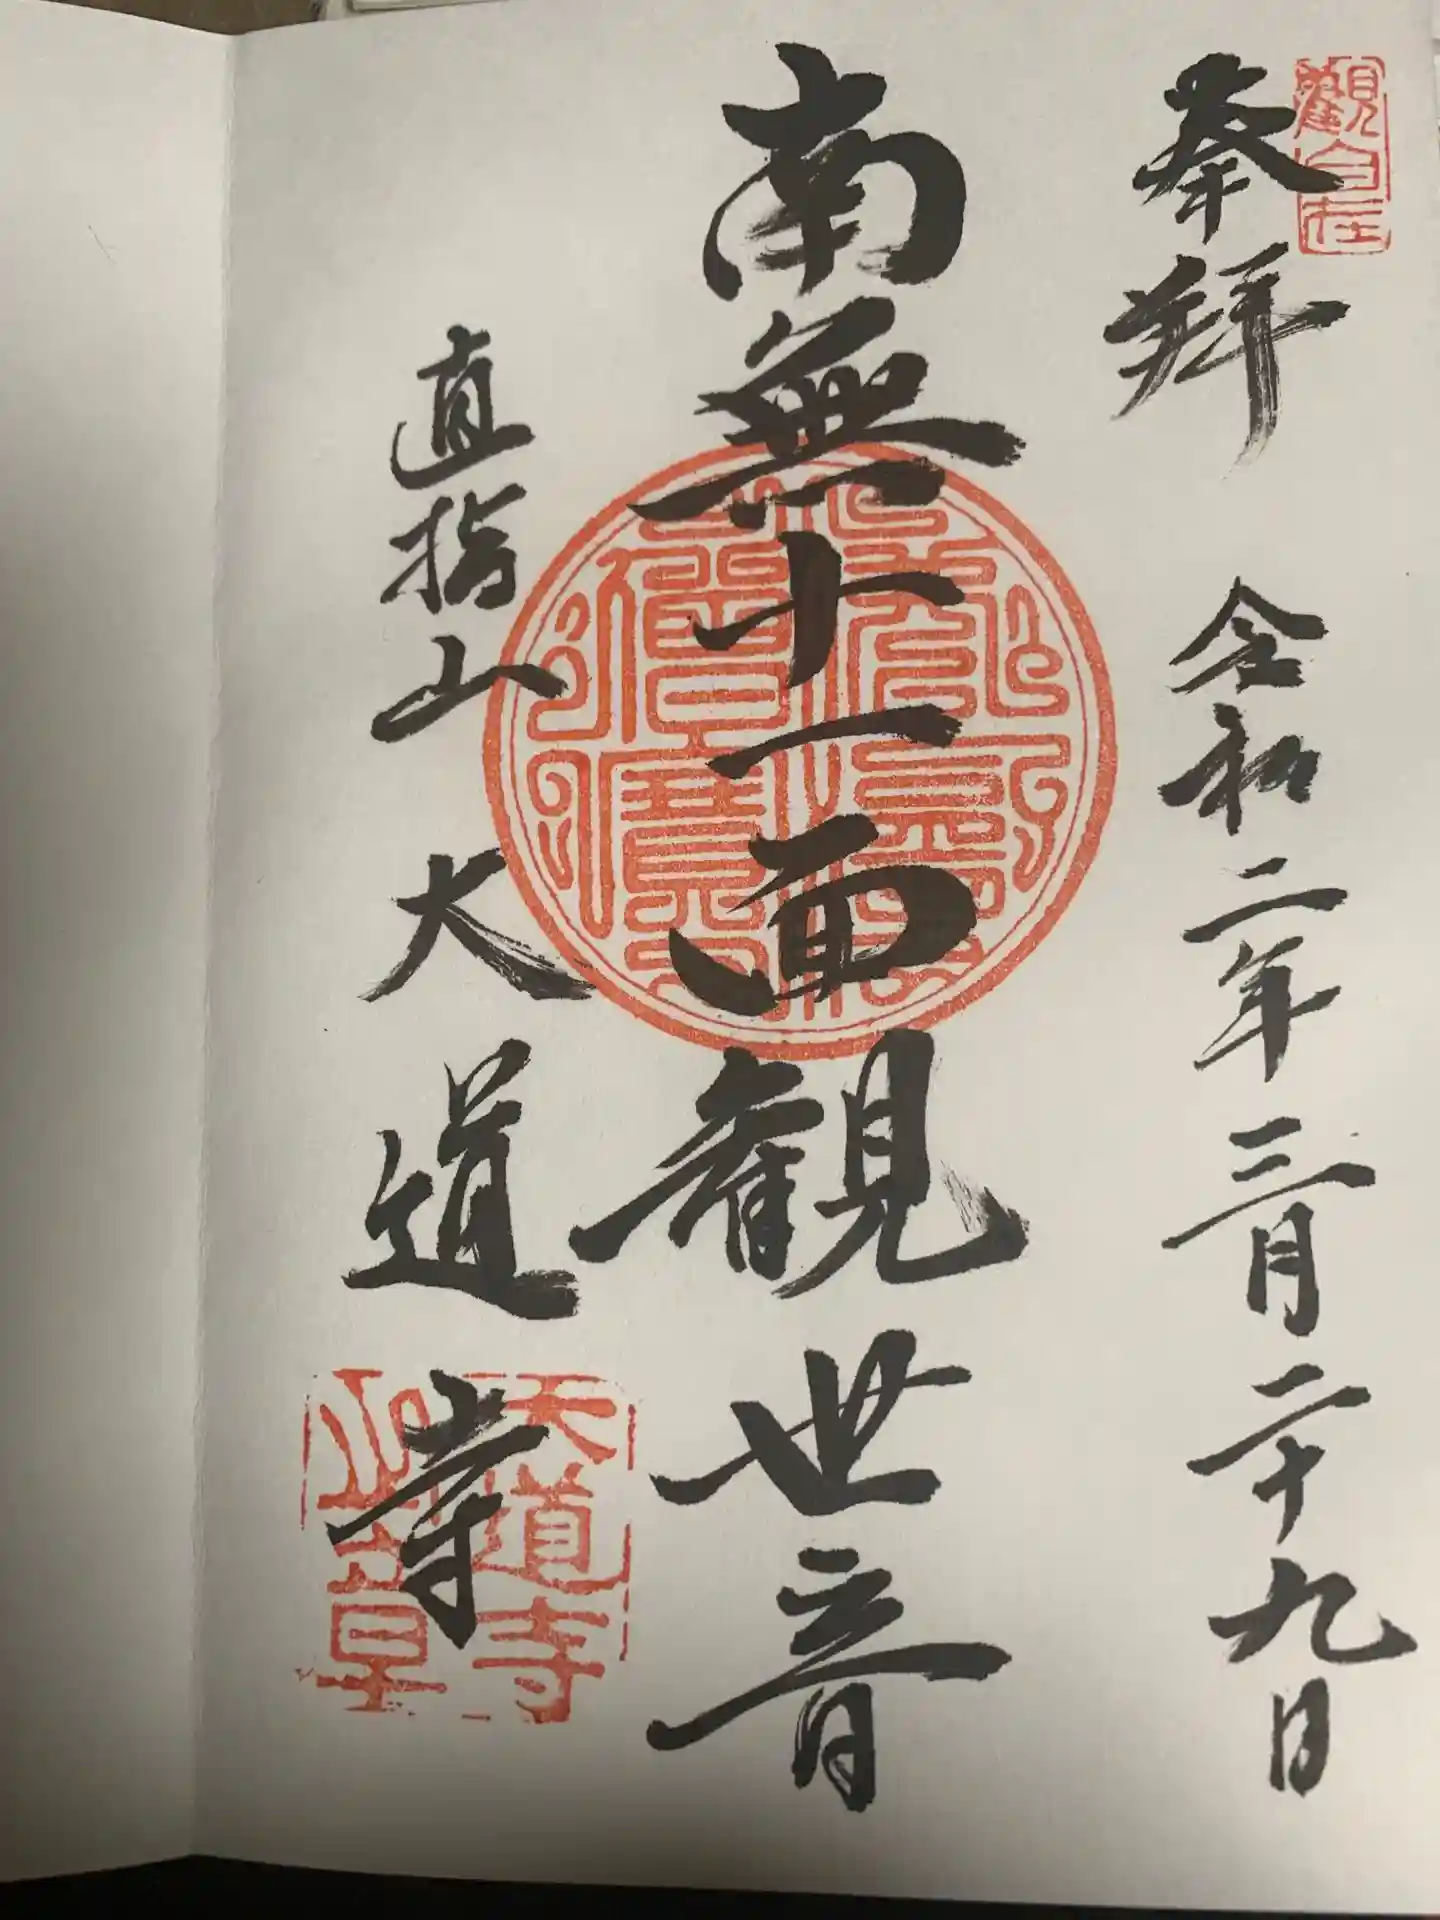 奉拝　令和二年三月二十九日
観自在
南無十一面観世音
仏法僧寳
直指山　大道寺
大道寺